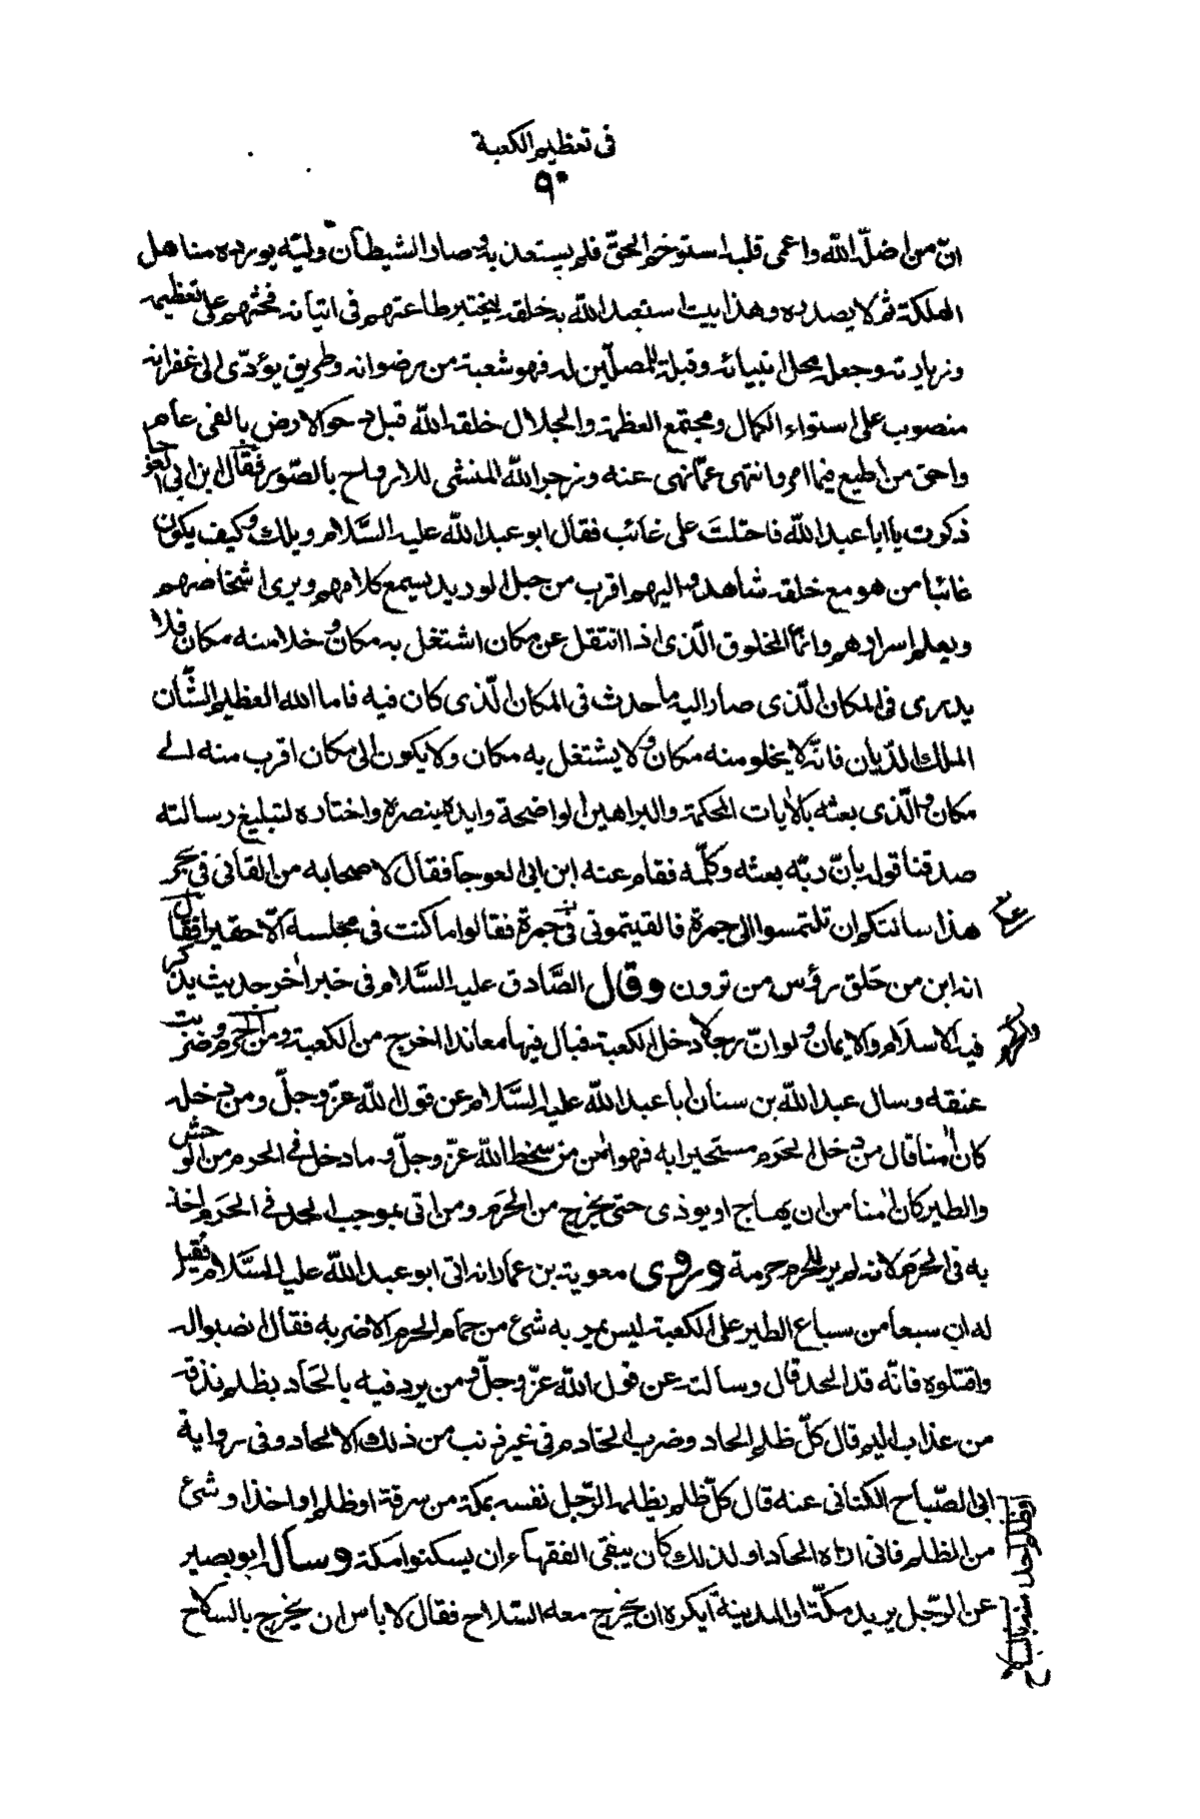 فى تعظيم الكعبة
٩٠
انّ من اضلّ الله واعمى قلبه استوخم الحقّ فلم يستعذ به وصار الشيطان وليّه يورده مناهل
الهلكة ثم لا يصدره وهذا بيت استعبد الله به خلقه ليختبر طاعتهم فى اتيانه فحثّهم على تعظيمه
وزيارته وجعله محل انبيائه وقبلة للمصلّين له فهو شعبة من رضوانه وطريق يؤدّى الى غفرانه
منصوب على استواء الكمال ومجتمع العظمة والجلال خلقه الله قبل دحو الارض بالفى عام
واحق من اطيع فيما امر وانتهى عمّا نهى عنه وزجر الله المنشى للارواح بالصّور فقال ابن ابى العوجا
ذكرت يا ابا عبد الله فاحلتَ على غائب فقال ابو عبد الله عليه السَّلام ويلك وكيف يكون
غائبا من هو مع خلقه شاهد واليهم اقرب من حبل الوريد يسمع كلامهم ويرى اشخاصهم
ويعلم اسرارهم وانما المخلوق الّذى اذا انتقل عن مكان اشتغل به مكان وخلا منه مكان فلا
يدرى فى المكان الّذى صار اليه ما حدث فى المكان الّذى كان فيه فاما الله العظيم الشّأن
الملك الدّيان فانّه لا يخلو منه مكان ولا يشتغل به مكان ولا يكون الى مكان اقرب منه الى
مكان والّذى بعثه بالايات المحكمة والبراهين الواضحة وايده بنصره واختاره لتبليغ رسالته
صدقنا قوله بانّ ربّه بعثه وكلّمه فقام عنه ابن ابى العوجا فقال لاصحابه من القانى فى بحر
هذا سالتكم ان تلتمسوا الى جمرة فالقيتمونى فى جمرة فقالوا ما كنت فى مجلسه الّا حقيرا فقال
انه ابن من حَلق رؤس من ترون وقال الصَّادق عليه السَّلام فى خبر آخر حديث يذكر
فيه الاسلام والايمان ولو انّ رجلا دخل الكعبة فبال فيها معاندا اخرج من الكعبة ومن الحرم وضربت
عنقه وسال عبد الله بن سنان ابا عبد الله عليه السَّلام عن قول الله عزّ وجلّ ومن دخله
كان امنا قال من دخل الحرم مستجيرا به فهو امن من سخط الله عزّ وجلّ وما دخل فى الحرم من الوحش
والطير كان امنا من ان يهاج او يوذى حتى يخرج من الحرم ومن اتى بموجب الحد فى الحرم اخذ
به فى الحرم لانه لم ير للحرم حرمة وروى معوية بن عمار انه اتى ابو عبد الله عليه السَّلام فقيل
له ان سبعا من سباع الطير على الكعبة ليس يمر به شئ من حمام الحرم الا ضربه فقال انصبوا له
واقتلوه فانّه قد الحد قال وسالته عن قول الله عزّ وجلّ ومن يرد فيه بالحاد بظلم نذقه
من عذاب اليم قال كلّ ظلم الحاد وضرب الخادم فى غير ذنب من ذلك الالحاد وفى رواية
ابى الصّباح الكنانى عنه قال كلّ ظلم يظلمه الرّجل نفسه بمكة من سرقة او ظلم او اخذا وشئ
من الظلم فانى اراه الحادا ولذلك كان يتقى الفقهاء ان يسكنوا مكة وسأل ابو بصير
عن الرّجل يريد مكّة او المدينة ايكره ان يخرج معه السّلاح فقال لا باس ان يخرج بالسلاح